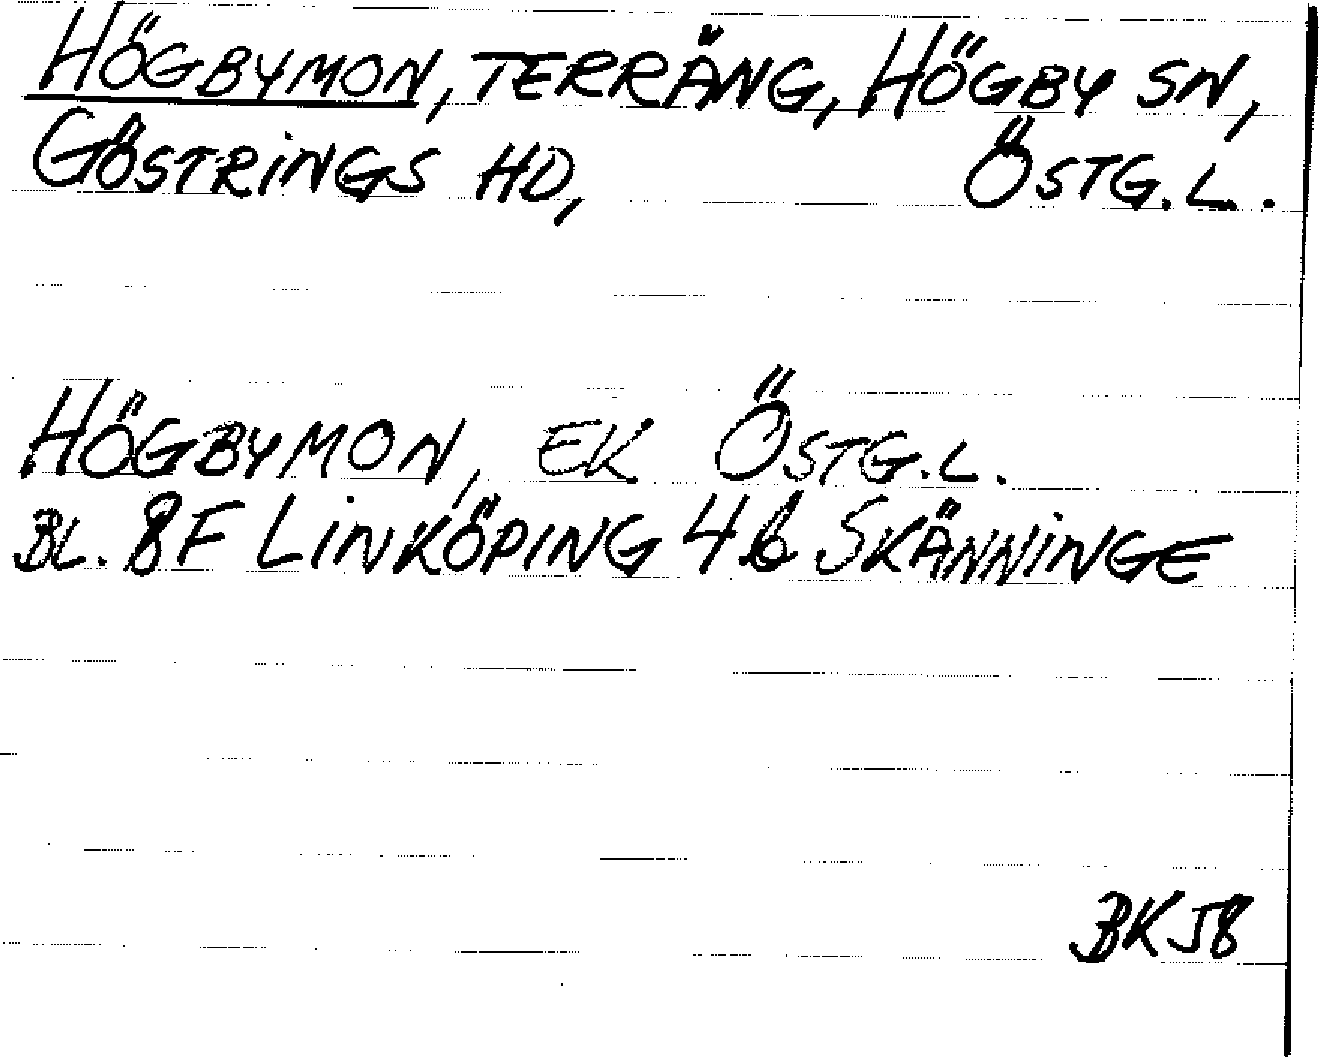 HÖGBYMON, TERRÄNG, HÖGBY SN,
GÖSTRINGS HD, ÖSTG.L.
HÖGBYMON, EK ÖSTG.L.
BL. 8F LINKÖPING 4b SKÄNNINGE
BK58